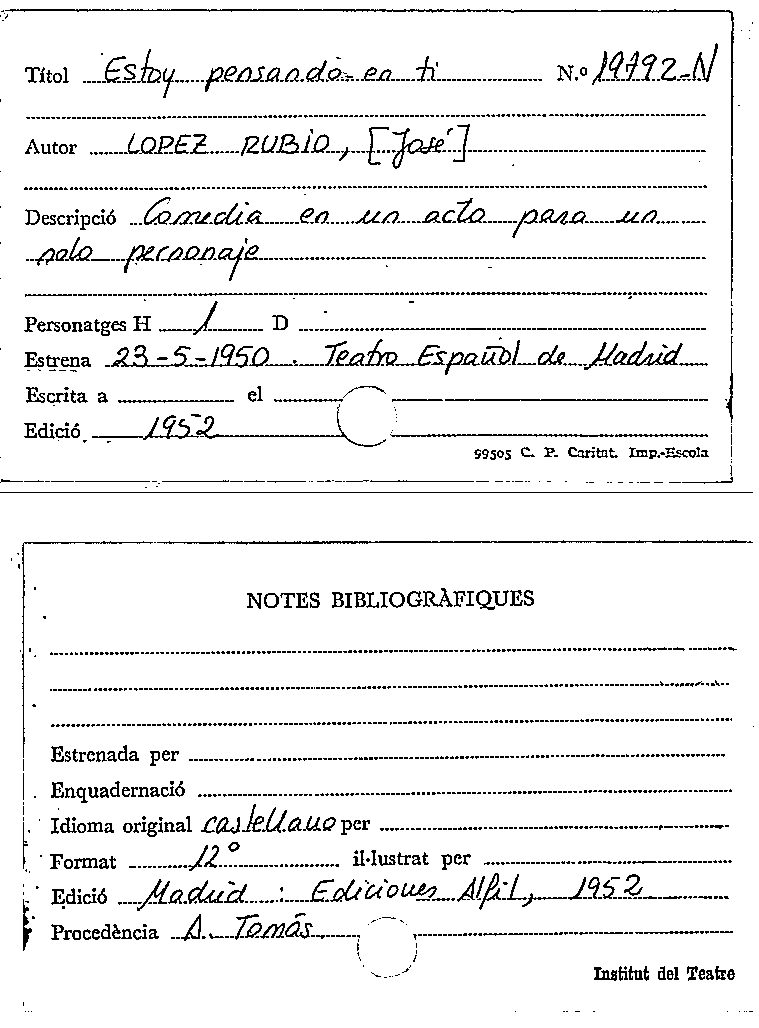 Títol Estoy pensando en ti N.º 19792-N
Autor LOPEZ RUBIO, [José]
Descripció Comedia en un acto para un
solo personaje
Personatges H 1 D
Estrena 23-5-1950. Teatro Español de Madrid
Escrita a el
Edició 1952
99505 C. P. Caritat. Imp.-Escola
NOTES BIBLIOGRÀFIQUES
Estrenada per
Enquadernació
Idioma original castellano per
Format 12º il·lustrat per
Edició Madrid : Ediciones Alfil, 1952
Procedència A. Tomás
Institut del Teatre